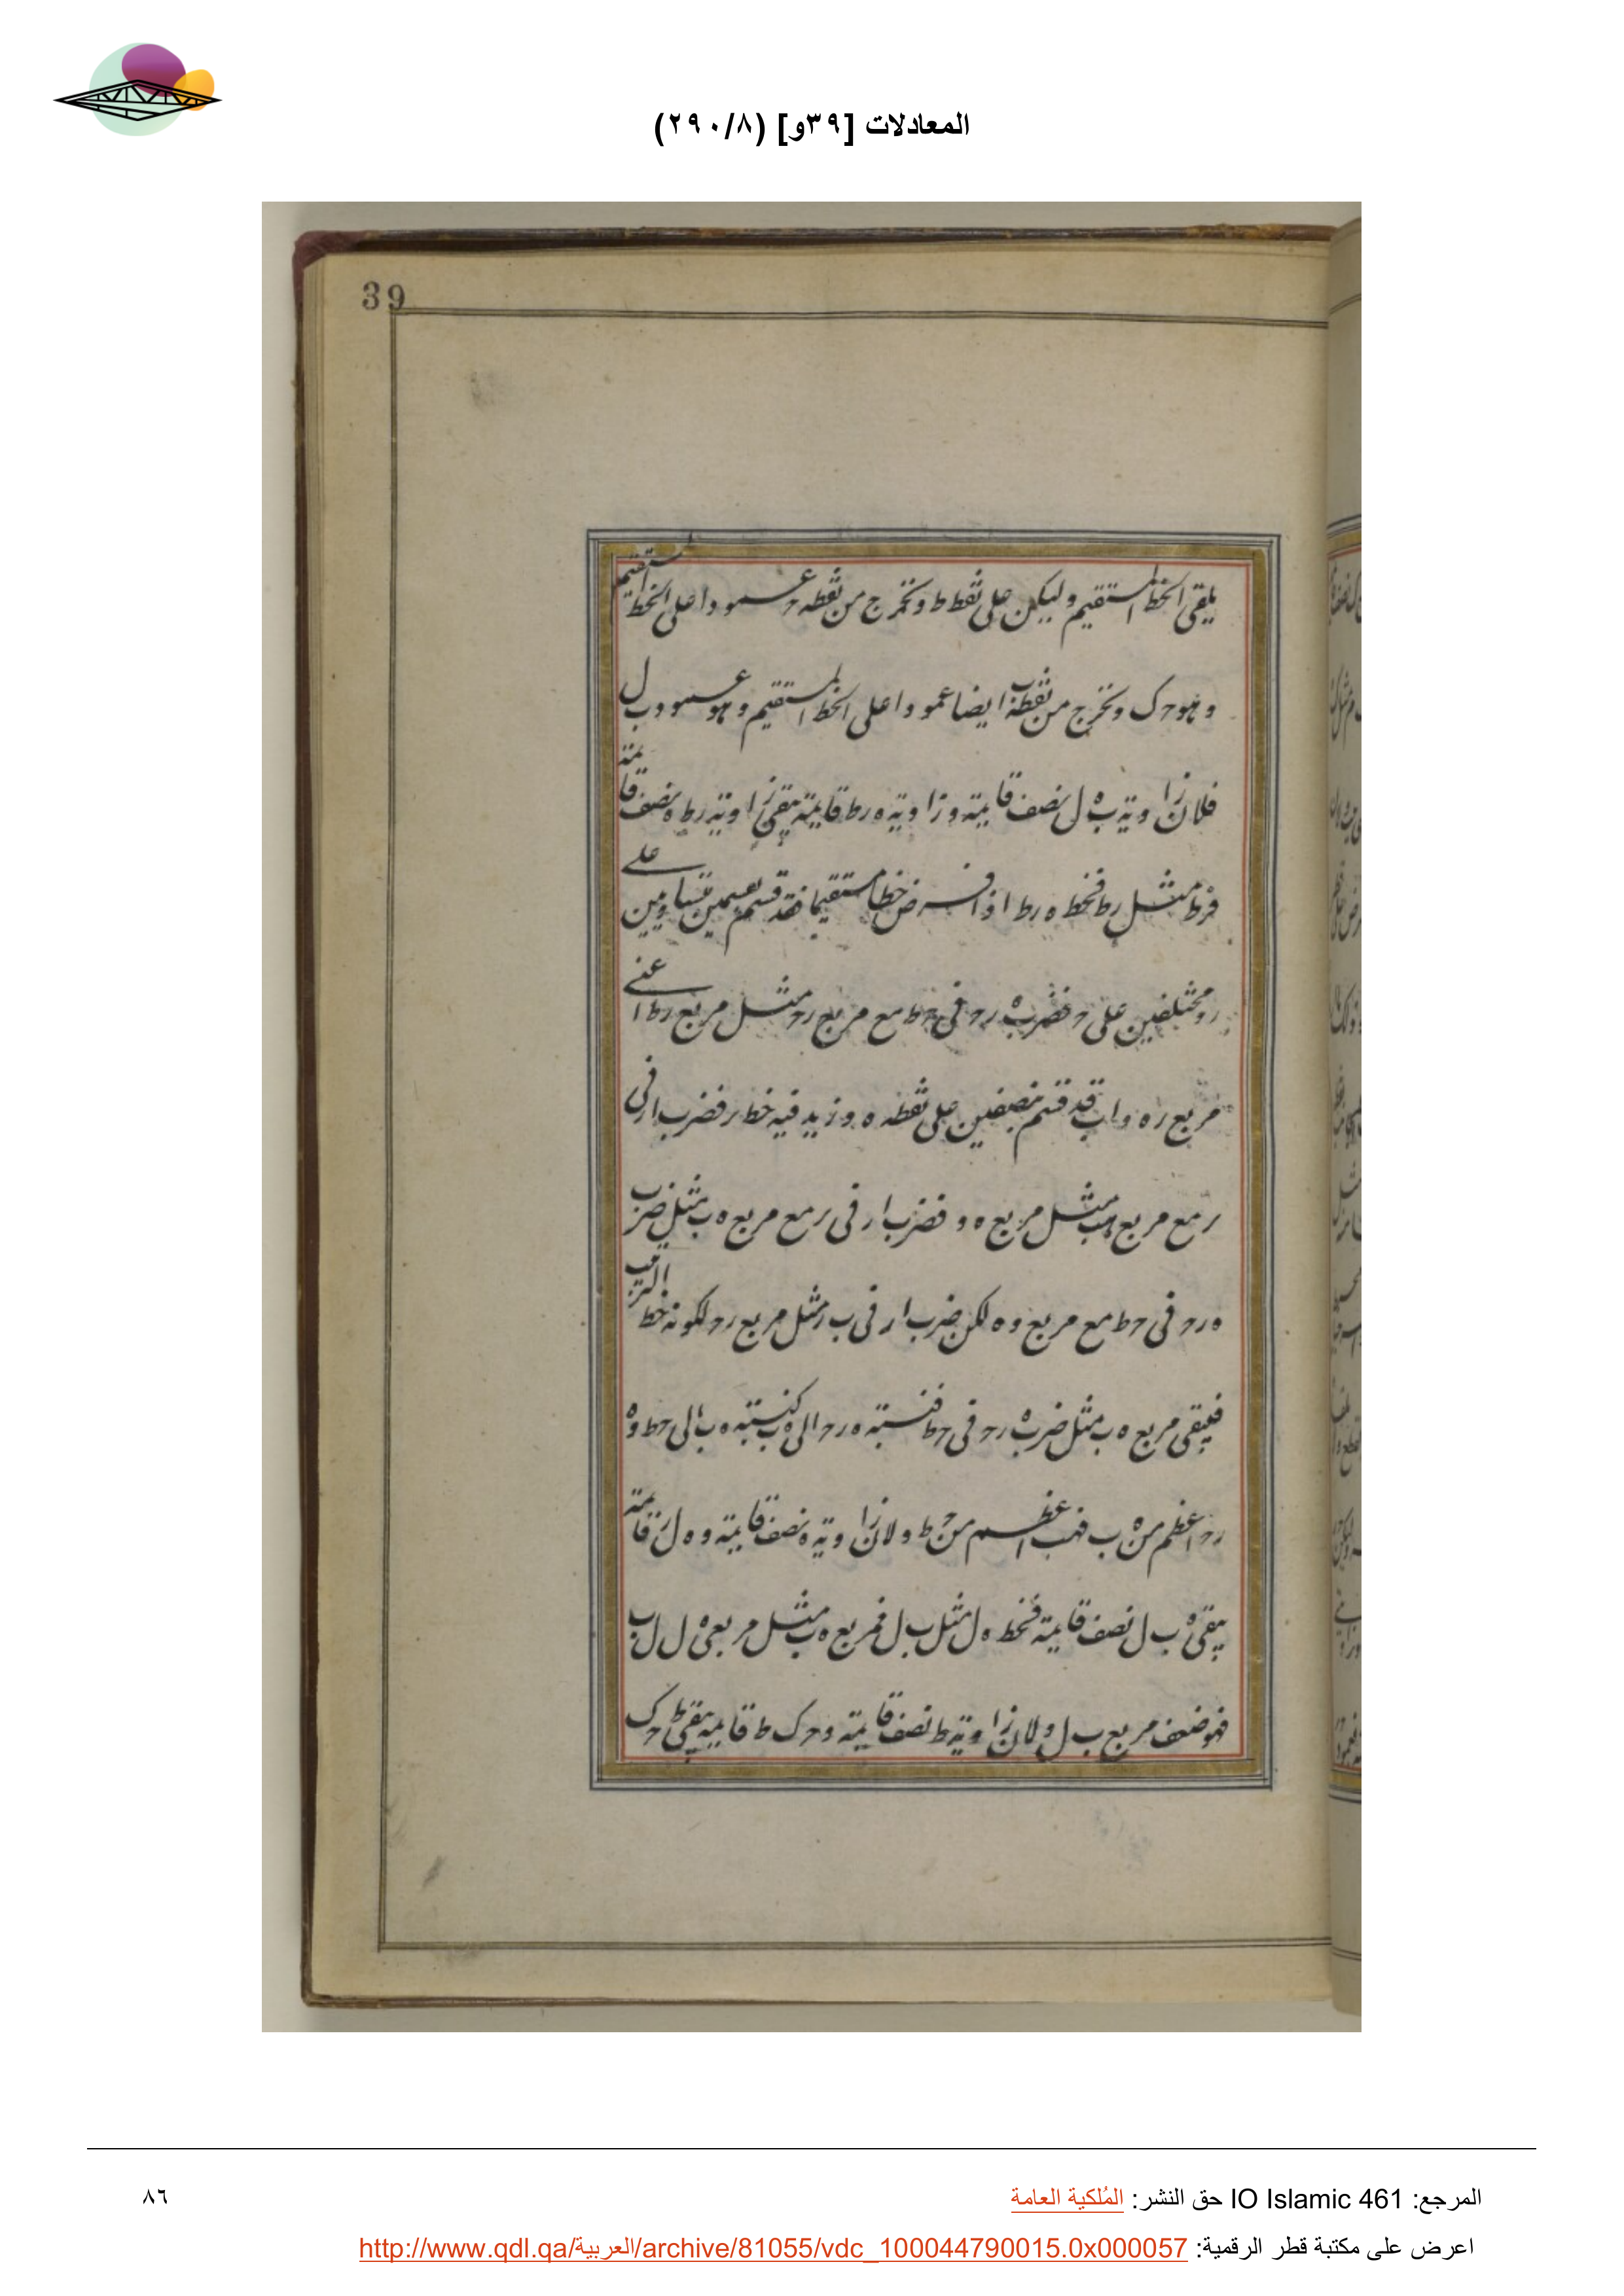 المعادلات [٣٩و] (٢٩٠/٨)
39
يلقى الخط المستقيم وليكن على نقطة ط ونخرج من نقطه ح عمودا على الخط المستقيم
وهو ح ك ونخرج من نقطة ب ايضا عمودا على الخط المستقيم وهو عمود ب ل
فلان زاوية ب ه ل نصف قايمة وزاوية ه ر ط قايمة يبقى زاوية ر ط ه نصف قايمة
فر ط مثل ر ه فخط ه ر ط اذا فرض خطا مستقيما فقد قسم بقسمين متساويين على
ر ومختلفين على ح فضرب ه ر ح فى ح ط مع مربع ر ح مثل مربع ر ط اعنى
مربع ر ه و ا ب قد قسم بنصفين على نقطه ه وزيد فيه خط ب ر فضرب ا ر فى
ب ر مع مربع ه ب مثل مربع ه ر فضرب ا ر فى ب ر مع مربع ه ب مثل ضرب
ه ر ح فى ح ط مع مربع ر ح لكن ضرب ا ر فى ب ر مثل مربع ر ح لكونه خط الترتيب
فيبقى مربع ه ب مثل ضرب ه ر ح فى ح ط فنسبة ه ر ح الى ه ب كنسبة ه ب الى ح ط و ه
ر ح اعظم من ه ب فه ب اعظم من ح ط ولان زاوية ه نصف قايمة و ه ل ب قايمة
يبقى ه ب ل نصف قايمة فخط ه ل مثل ب ل فمربع ه ب مثل مربعى ه ل ل ب
فهو ضعف مربع ب ل ولان زاوية ط نصف قايمة و ح ك ط قايمه يبقى ط ح ك
المرجع: IO Islamic 461 حق النشر: المُلكية العامة
٨٦
اعرض على مكتبة قطر الرقمية: http://www.qdl.qa/العربية/archive/81055/vdc_100044790015.0x000057